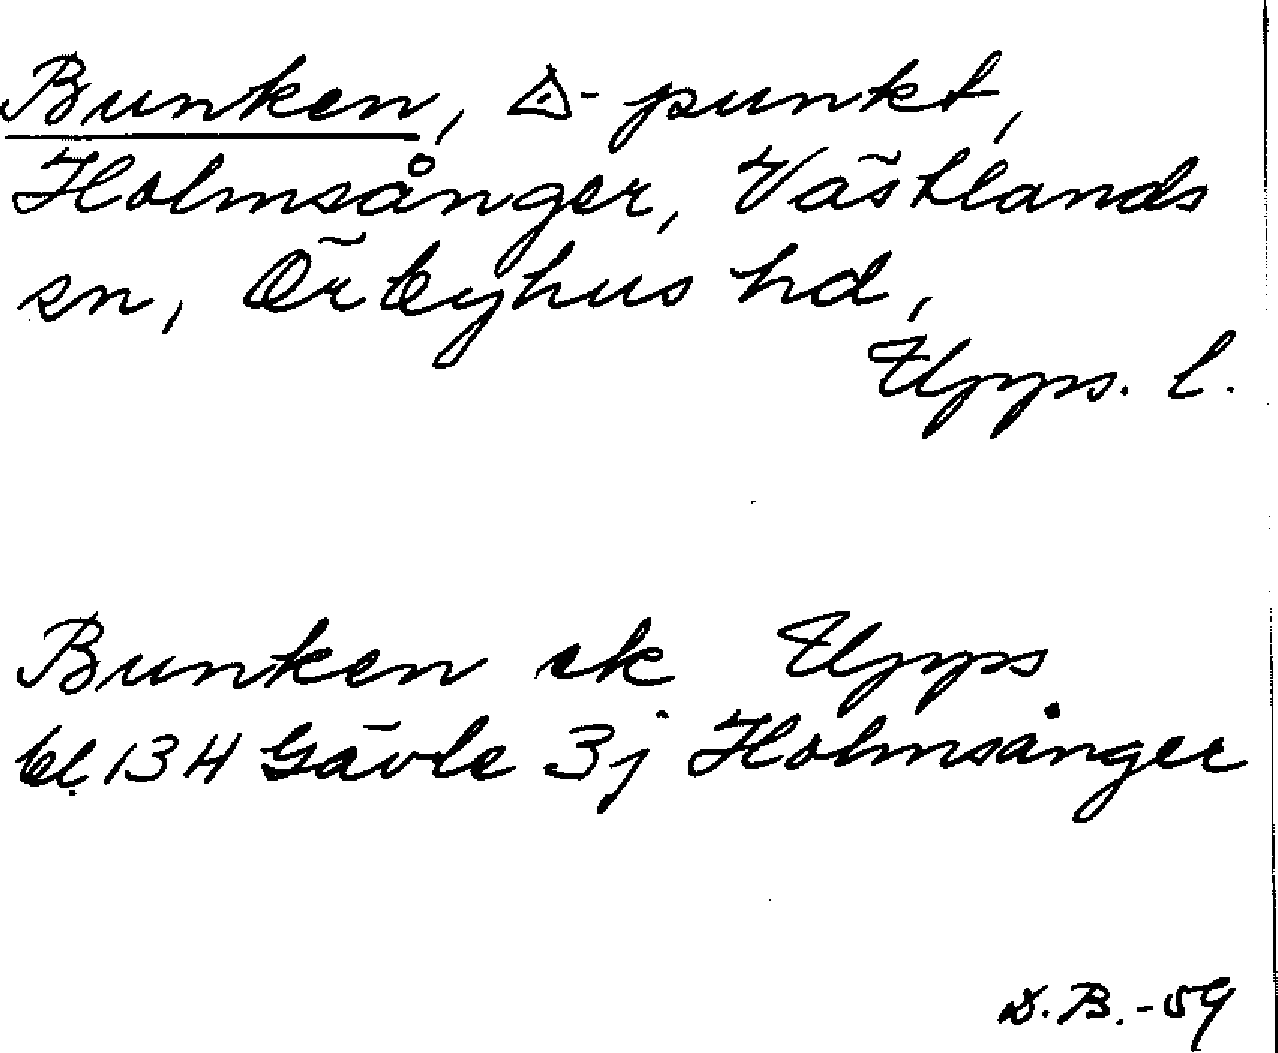 Bunken, △-punkt,
Holmsånger, Västlands
sn, Örbyhus hd,
Upps. l.
Bunken ek Upps
bl. 13 H Gävle 3j Holmsånger
D.B.-59